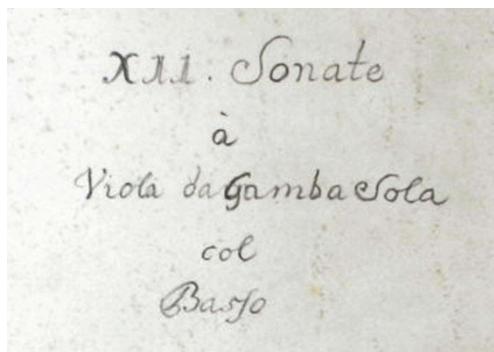 XII. Sonate
à
Viola da Gamba Sola
col
Basso